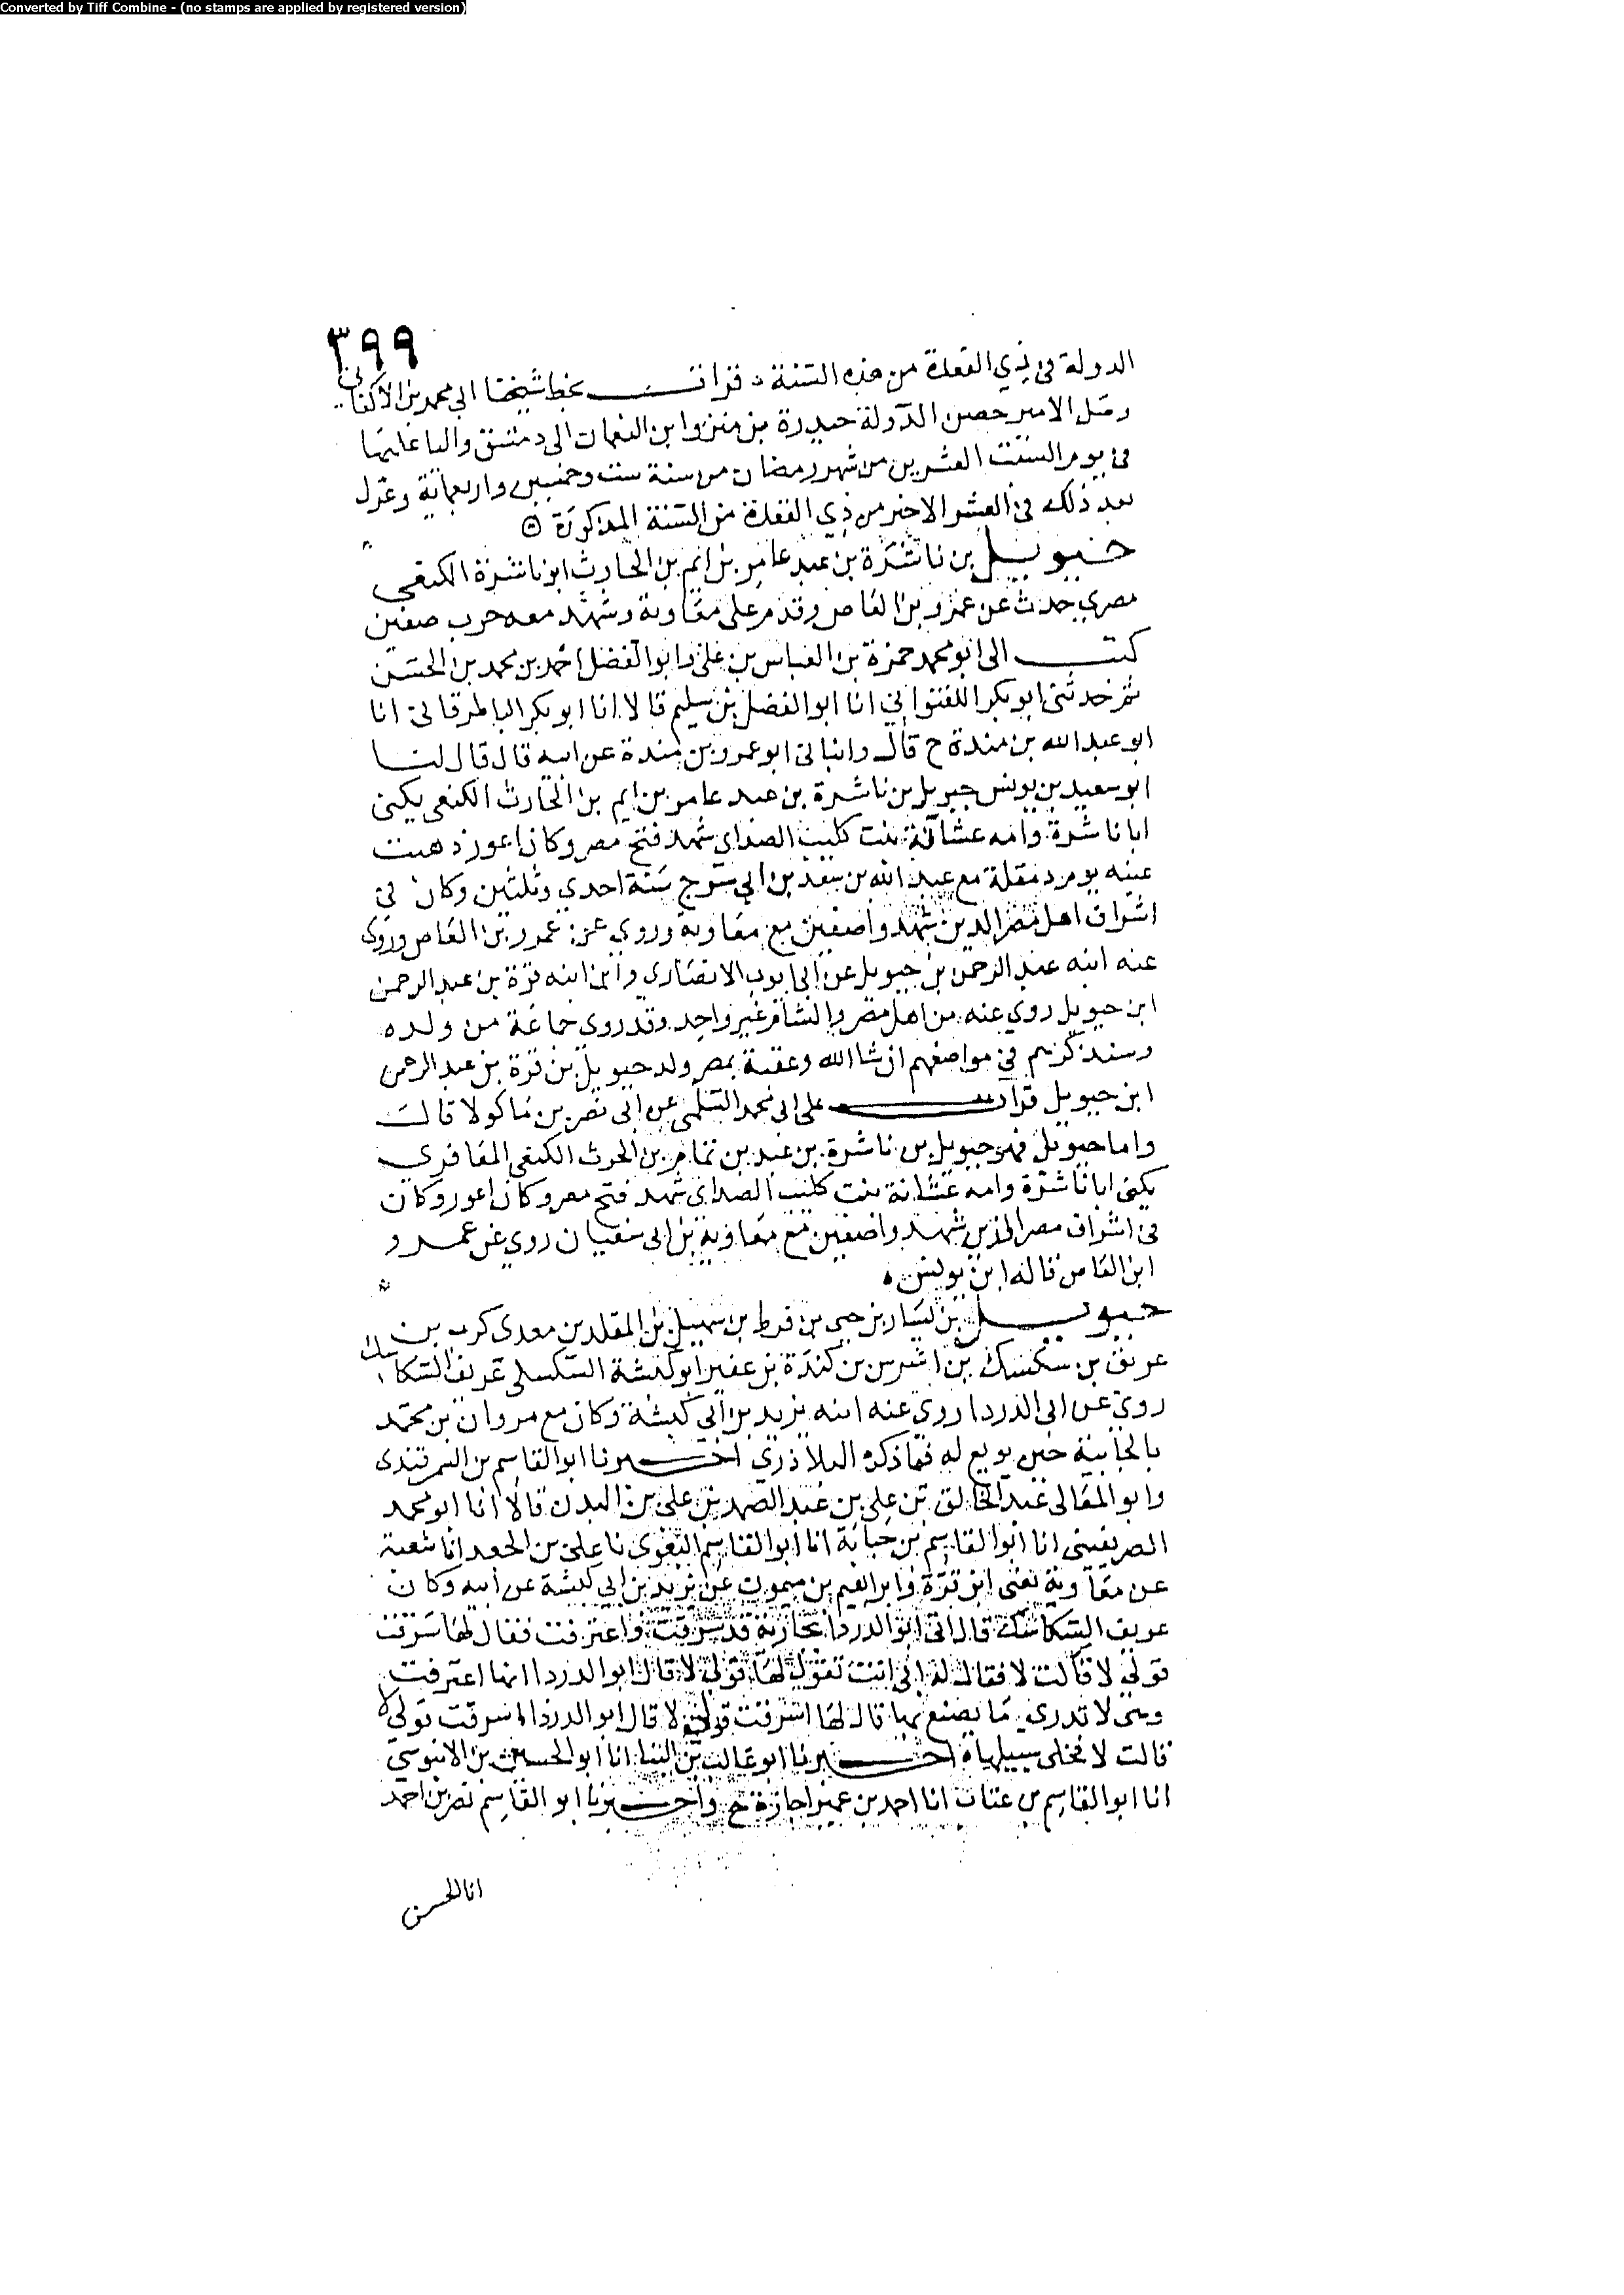 Converted by Tiff Combine - (no stamps are applied by registered version)
٣٩٩
الدولة فى ذي القعدة من هذه السنة قرات بخط شيخنا ابي محمد بن الاكفاني
وصل الامير حصن الدولة حيدرة بن منزوا بن النعمان الى دمشق واليا عليها
في يوم السبت العشرين من شهر رمضان من سنة ست وخمسين واربعماية وعزل
بعد ذلك في العشر الاخير من ذي القعدة من السنة المذكورة
حيويل بن ناشرة بن عبد عامر بن ايم بن الحارث ابو ناشرة الكنعي
مصري حدث عن عمرو بن العاص وقدم على معاوية وشهد معه حرب صفين
كتب الى ابو محمد حمزة بن العباس بن علي وابو الفضل احمد بن محمد بن الحسن
ثم حدثني ابو بكر اللفتواني انا ابو الفضل بن سليم قالا انا ابو بكر الباطرقاني انا
ابو عبد الله بن مندة ح قال وانبانى ابو عمرو بن مندة عن ابيه قال قال لنا
ابو سعيد بن يونس حيويل بن ناشرة بن عبد عامر بن ايم بن الحارث الكنعي يكنى
ابا ناشرة وامه عشانة بنت كليب الصداي شهد فتح مصر وكان اعور ذهبت
عينه يوم دمقلة مع عبد الله بن سعد بن ابي سرح سنة احدي وثلثين وكان في
اشراف اهل مصر الذين شهدوا صفين مع معاوية وروي عن عمرو بن العاص وروى
عنه ابنه عبد الرحمن بن حيويل عن ابي ايوب الانصاري وابن ابنه قرة بن عبد الرحمن
ابن حيويل روي عنه من اهل مصر والشام غير واحد وقد روى جماعة من ولده
وسنذكرهم في مواضعهم ان شا الله وعقبه بمصر ولد حيويل بن قرة بن عبد الرحمن
ابن حيويل قرات على ابي محمد السلمي عن ابي نصر بن ماكولا قال
واما حيويل فهو حيويل بن ناشرة بن عبد بن عامر بن الحرث الكنعي المعافري
يكنى ابا ناشرة وامه عشانة بنت كليب الصداي شهد فتح مصر وكان اعور وكان
في اشراف مصر الذين شهدوا صفين مع معاوية بن ابي سفيان روي عن عمرو
ابن العاص قاله ابن يونس
حيويل بن يسار بن حيي بن قرط بن سهيل بن المقلد بن معدي كرب بن
عريق بن سكسك بن اشرس بن كندة بن عفير ابو كبشة السكسكي عريف السكاسك
روي عن ابي الدردا روى عنه ابنه يزيد بن ابي كبشة وكان مع مروان بن محمد
بالجابية حين بويع له فيما ذكره البلاذري اخبرنا ابو القاسم بن السمرقندى
وابو المعالى عبد الخالق بن علي بن عبد الصمد بن علي بن البدن قالا انا ابو محمد
الصريفيني انا ابو القاسم بن حبابة انا ابو القاسم البغوي نا علي بن الجعد انا شعبة
عن معاوية يعني ابن قرة وابراهيم بن ميمون عن يزيد بن ابي كبشة عن ابيه وكان
عريف السكاسك قال اتى ابو الدردا بجارية قد سرقت واعترفت فقال لها سرقت
قولي لا قالت لا فقال له ابي انت تقول لها قولي لا قال ابو الدردا انها اعترفت
وهي لا تدري ما يصنع بها قال لها اسرقت قولي لا قال ابو الدردا اسرقت قولي لا
قالت لا فخلى سبيلها اخبرنا ابو غالب بن البنا انا ابو الحسين بن الابنوسي
انا ابو القاسم بن عتاب انا احمد بن عمير اجازة ح واخبرنا ابو القاسم نصر بن احمد
انا الحسن